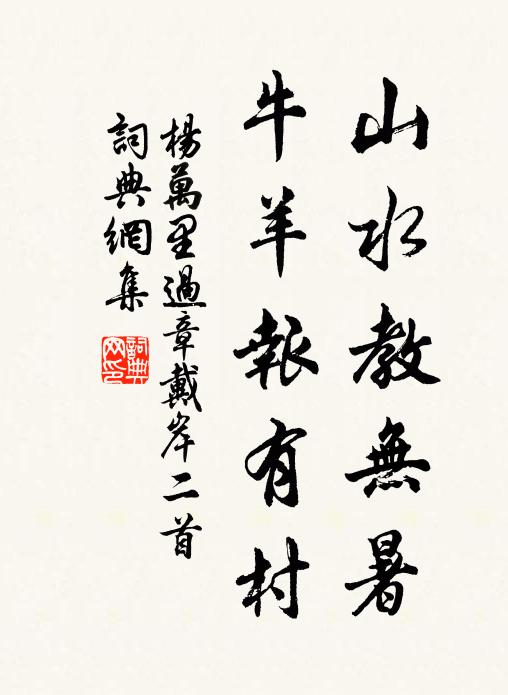 山水教無暑
牛羊報有村
楊萬里過章戴岸二首
詞典網集
詞典網印